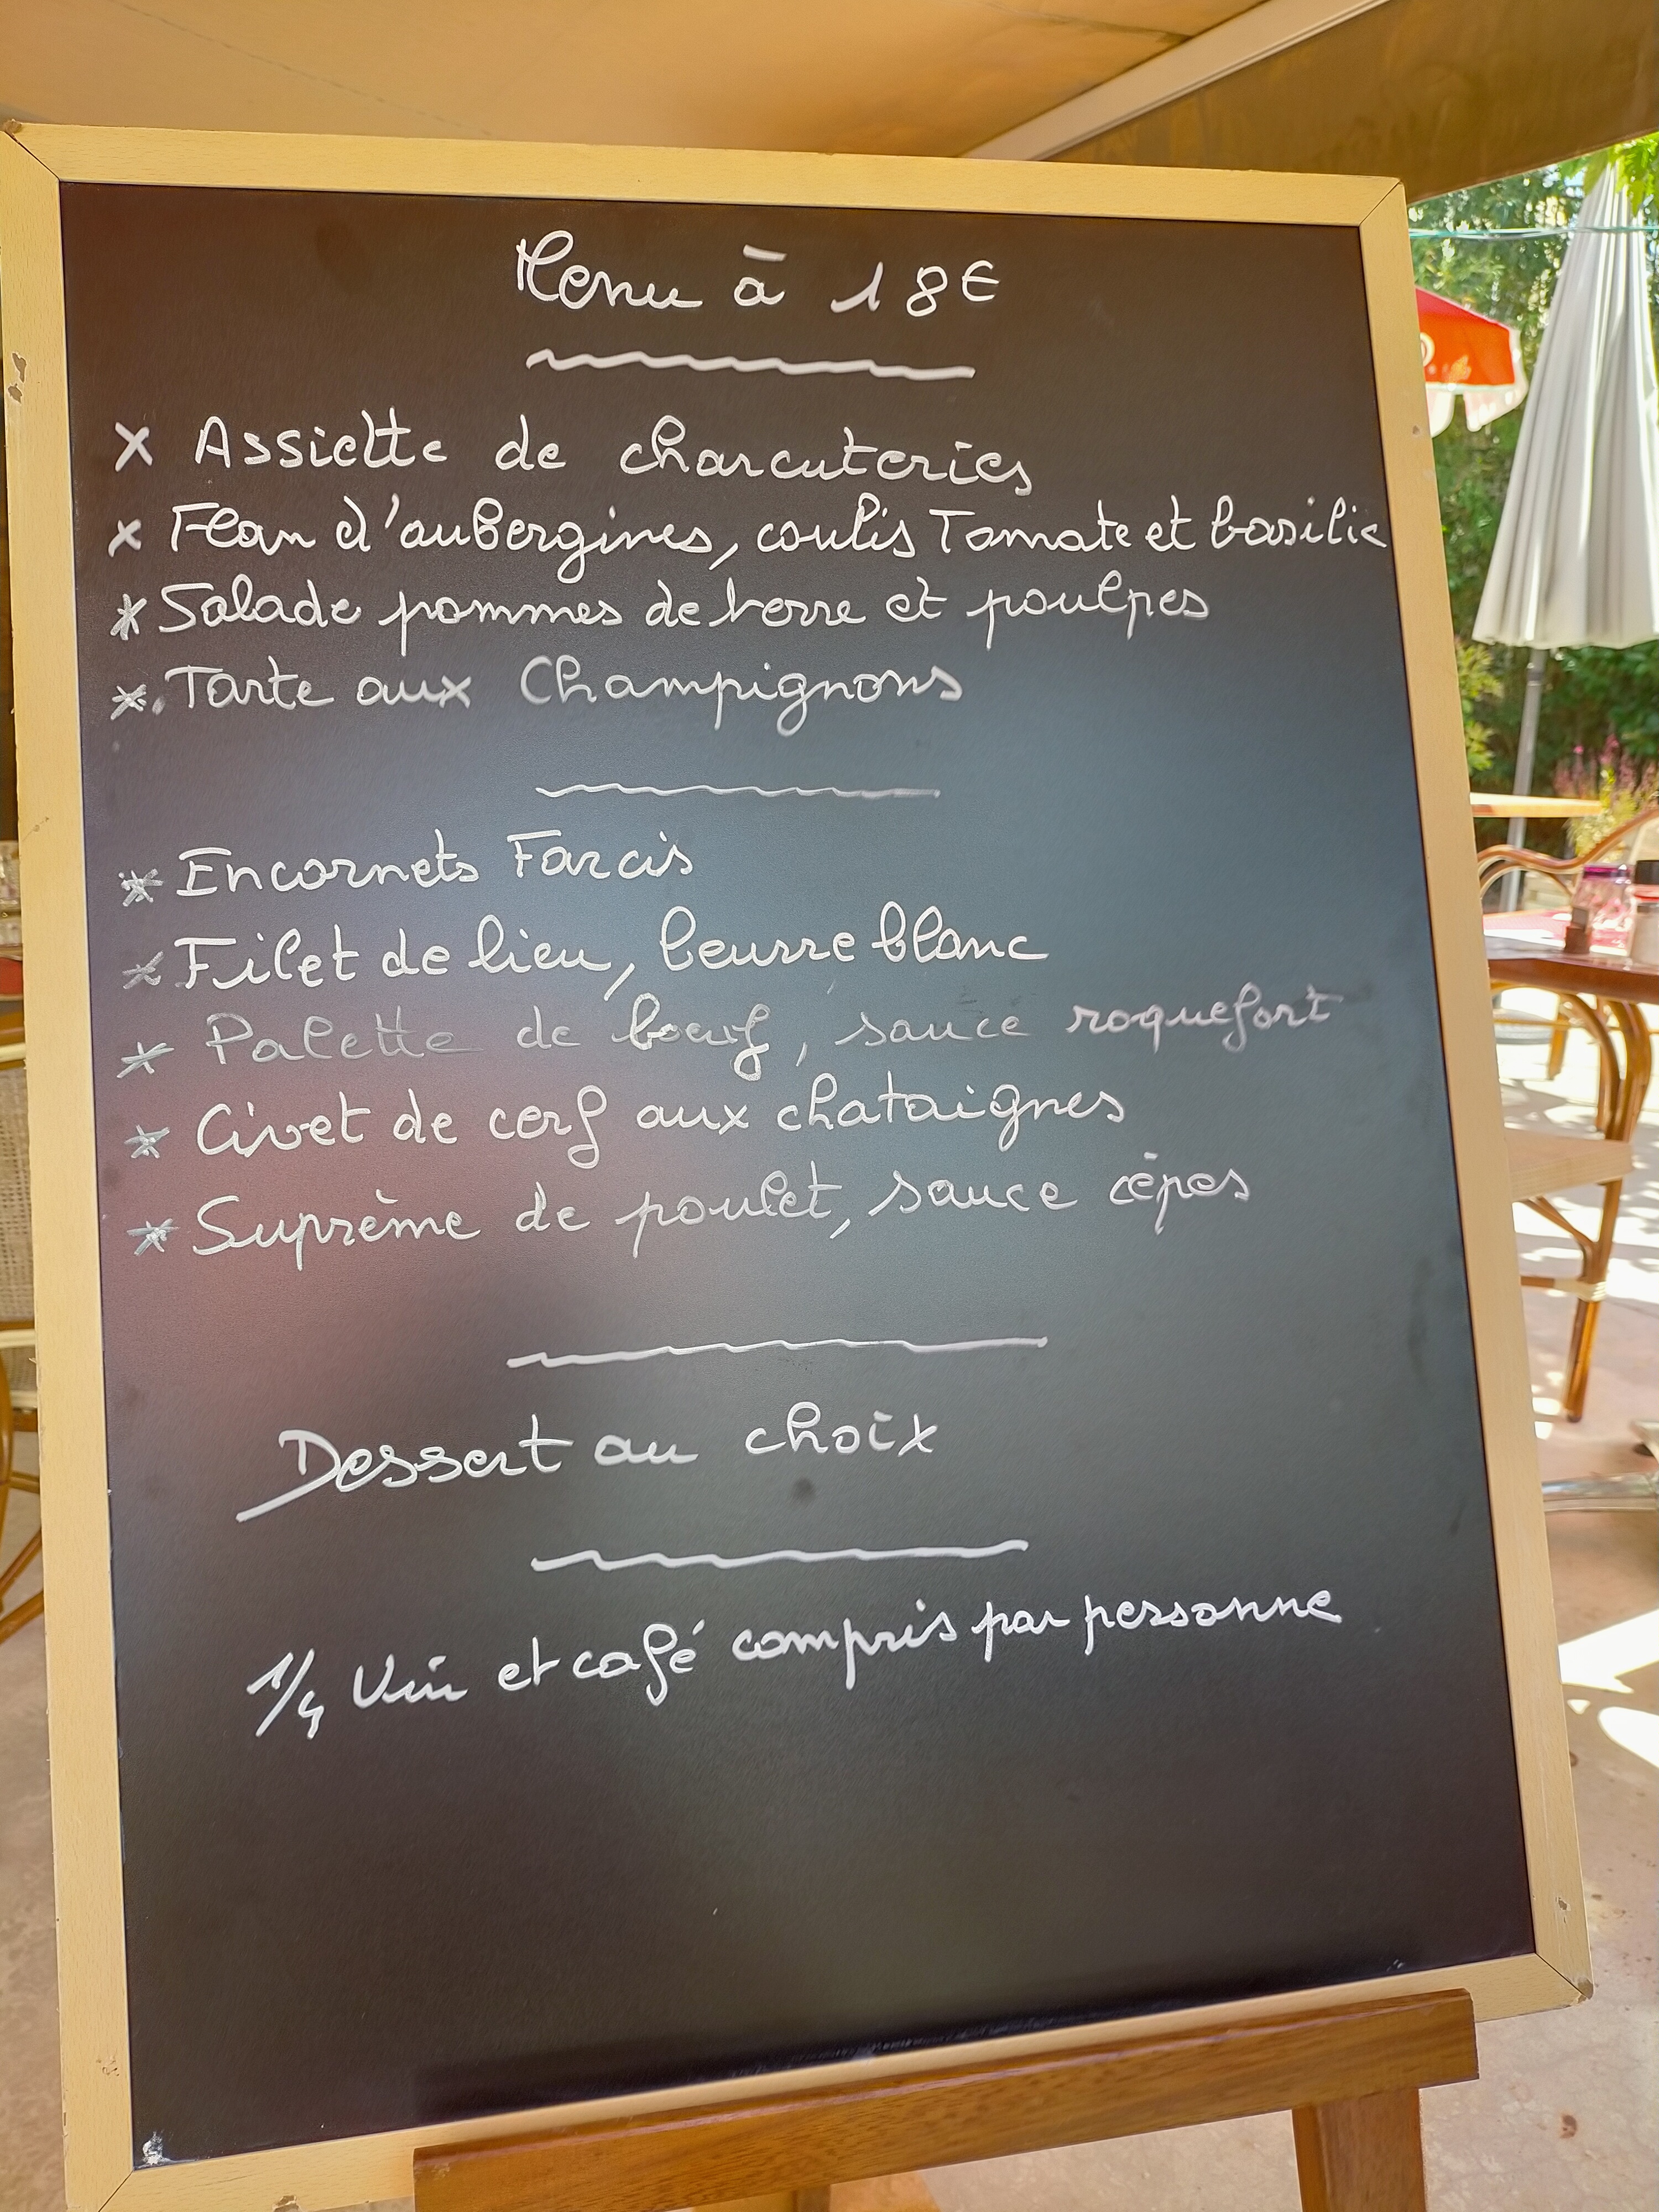 Menu à 18€
x Assiette de charcuteries
x Flan d'aubergines, coulis Tomate et basilic
* Salade pommes de terre et poulpes
* Tarte aux Champignons
* Encornets Farcis
* Filet de lieu, beurre blanc
* Palette de boeuf, sauce roquefort
* Civet de cerf aux chataignes
* Suprème de poulet, sauce cèpes
Dessert au choix
1/4 Vin et café compris par personne